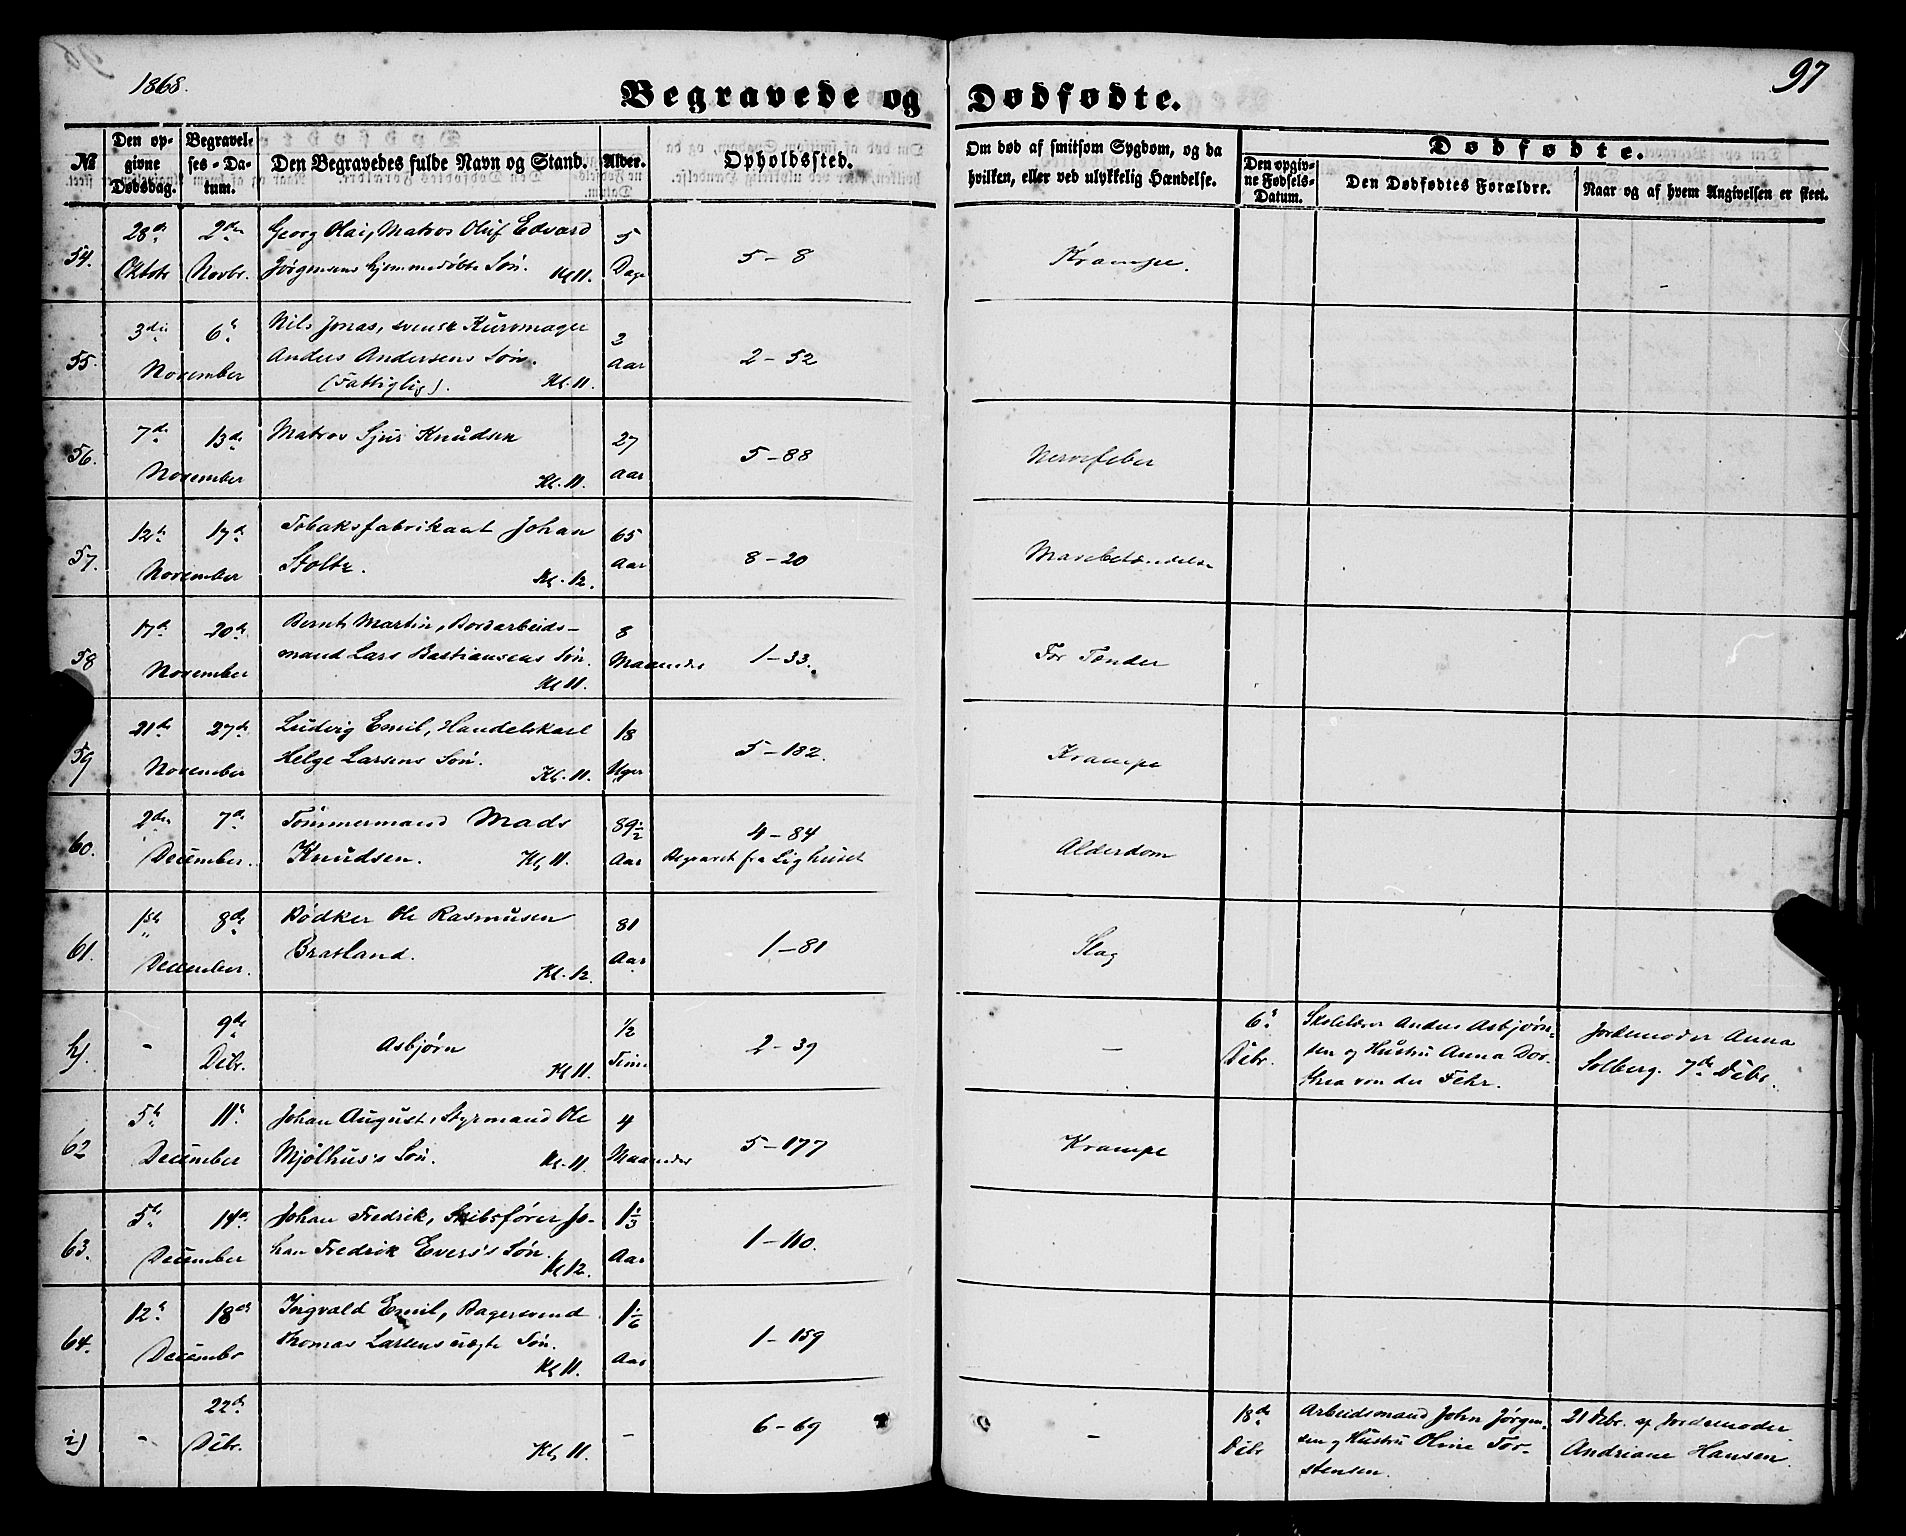 1868.
97
Begravede og Dødfødte.
№
Den opgivne Dødsdag.
Begravelses-Datum.
Den Begravedes fulde Navn og Stand.
Alder.
Opholdssted.
Om død af smitsom Sygdom, og da hvilken, eller ved ulykkelig Hændelse.
Dødfødte.
Den opgivne Fødsels-Datum.
Den Dødfødtes Forældre.
Naar og af hvem Angivelsen er skeet.
54. 28de Oktobr 2den Novbr. Georg Olai, Matros Oluf Edvard
Jørgensens hjemmedøbte Søn. Kl 11. 5 Dage 5-8 Krampe.
55. 3die 6te November Nils Jonas, svensk Kurvmager
Anders Andersens Søn.
(Fattiglig). Kl. 11. 2 Aar 2-52
56. 7de 13de November Matros Sjur Knudsen
Kl. 11. 27 Aar 5-88 Nervefeber
57. 12te 17de November Tobaksfabrikant Johan
Stoltz. Kl. 12. 65 Aar 8-20 Mavebetændelse
58 17de 20de November Bernt Martin, Bordarbeids-
mand Lars Bastiansens Søn.
Kl 11. 8 Maaneder 1-33. For Tænder
59 21de 27de November Ludvig Emil, Handelskarl
Helge Larsens Søn. Kl. 11. 18 Uger 5-182. Krampe
60. 2den 7de December. Tømmermand Mads
Knudsen. Kl. 11. 89½ Aar 4-84
Begravet fra Lighuset Alderdom
61. 1ste 8de December. Bødker Ole Rasmusen
Bratland. Kl. 12 81 Aar 1-81 Slag
h). - 9de Debr. Asbjørn
Kl 11. ½ Time 2-39 - 6te Debr. Skolelærer Anders Asbjørn-
sen og Hustru Anna Dor-
thea von der Fehr. Jordemoder Anna
Solberg. 7de Debr.
62 5te 11te December Johan August, Styrmand Ole
Mjølhus's Søn. Kl. 11. 4 Maaneder 5-177 Krampe
63. 5te 14de December Johan Fredrik, Skibsfører Jo-
han Fredrik Evers's Søn. Kl 12. 1⅓ Aar 1-110.
64. 12te 18de December Ingvald Emil, Bagersvend
Thomas Larsens uægte Søn.
Kl 11. 1⅙ Aar 1-159
i) - 22de Debr. Kl. 11. - 6-69 - 18de Debr Arbeidsmand John Jørgen-
sen og Hustru Oline Tor-
stensen. 21 Debr. af Jordemoder
Andriane Hansen.